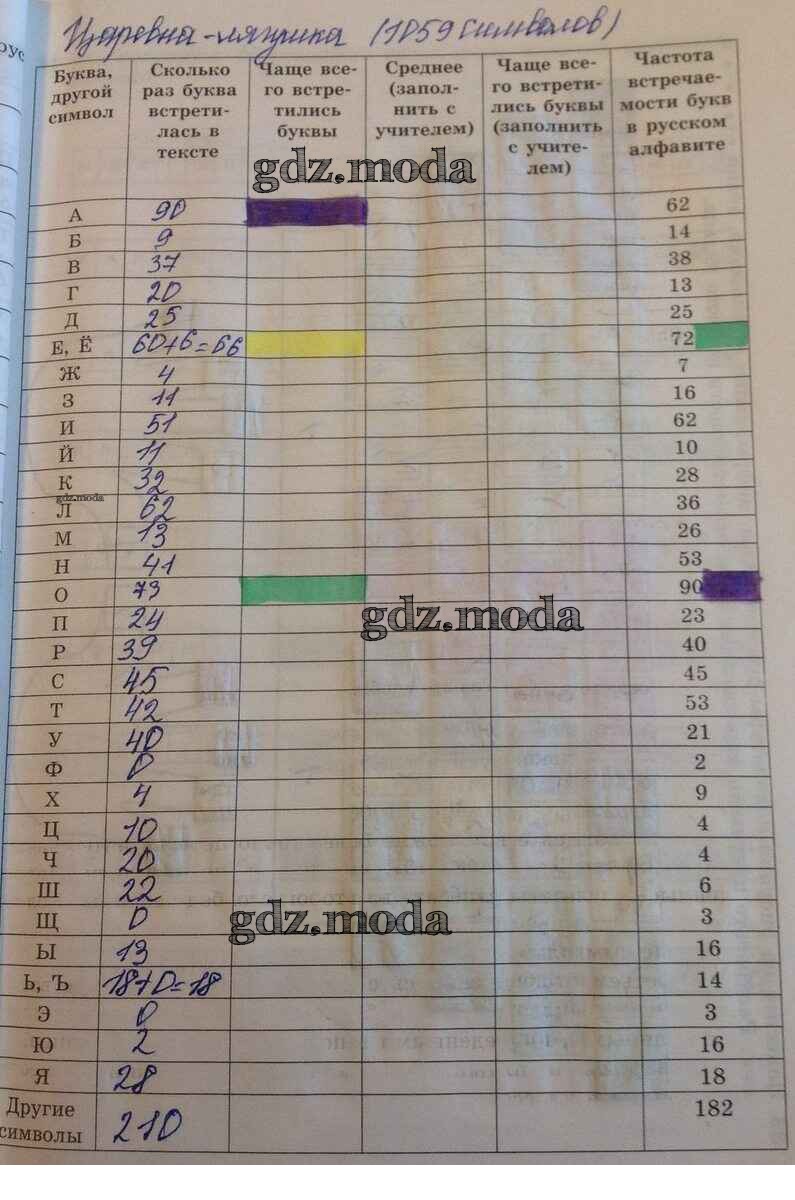 рус
Царевна-лягушка (1059 символов)
Буква, другой символ | Сколько раз буква встрети- лась в тексте | Чаще все- го встре- тились буквы | Среднее (запол- нить с учителем) | Чаще все- го встрети- лись буквы (заполнить с учите- лем) | Частота встречае- мости букв в русском алфавите
gdz.moda
А 90 62
Б 9 14
В 37 38
Г 20 13
Д 25 25
Е, Ё 60+6=66 72
Ж 4 7
З 11 16
И 51 62
Й 11 10
К 32 28
gdz.moda
Л 62 36
М 13 26
Н 41 53
О 73 90
gdz.moda
П 24 23
Р 39 40
С 45 45
Т 42 53
У 40 21
Ф 0 2
Х 4 9
Ц 10 4
Ч 20 4
Ш 22 6
Щ 0 3
gdz.moda
Ы 13 16
Ь, Ъ 18+0=18 14
Э 0 3
Ю 2 16
Я 28 18
Другие символы 210 182